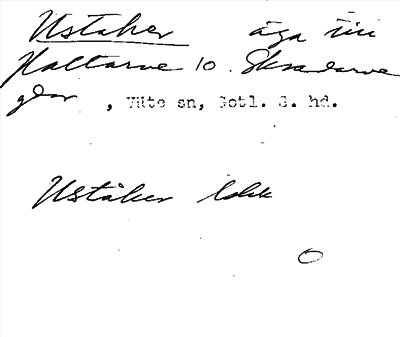 Ustaker äga till
Hallarve 10. Skradarve
gdar, Väte sn, Gotl. S. hd.
Uståker lokk
O